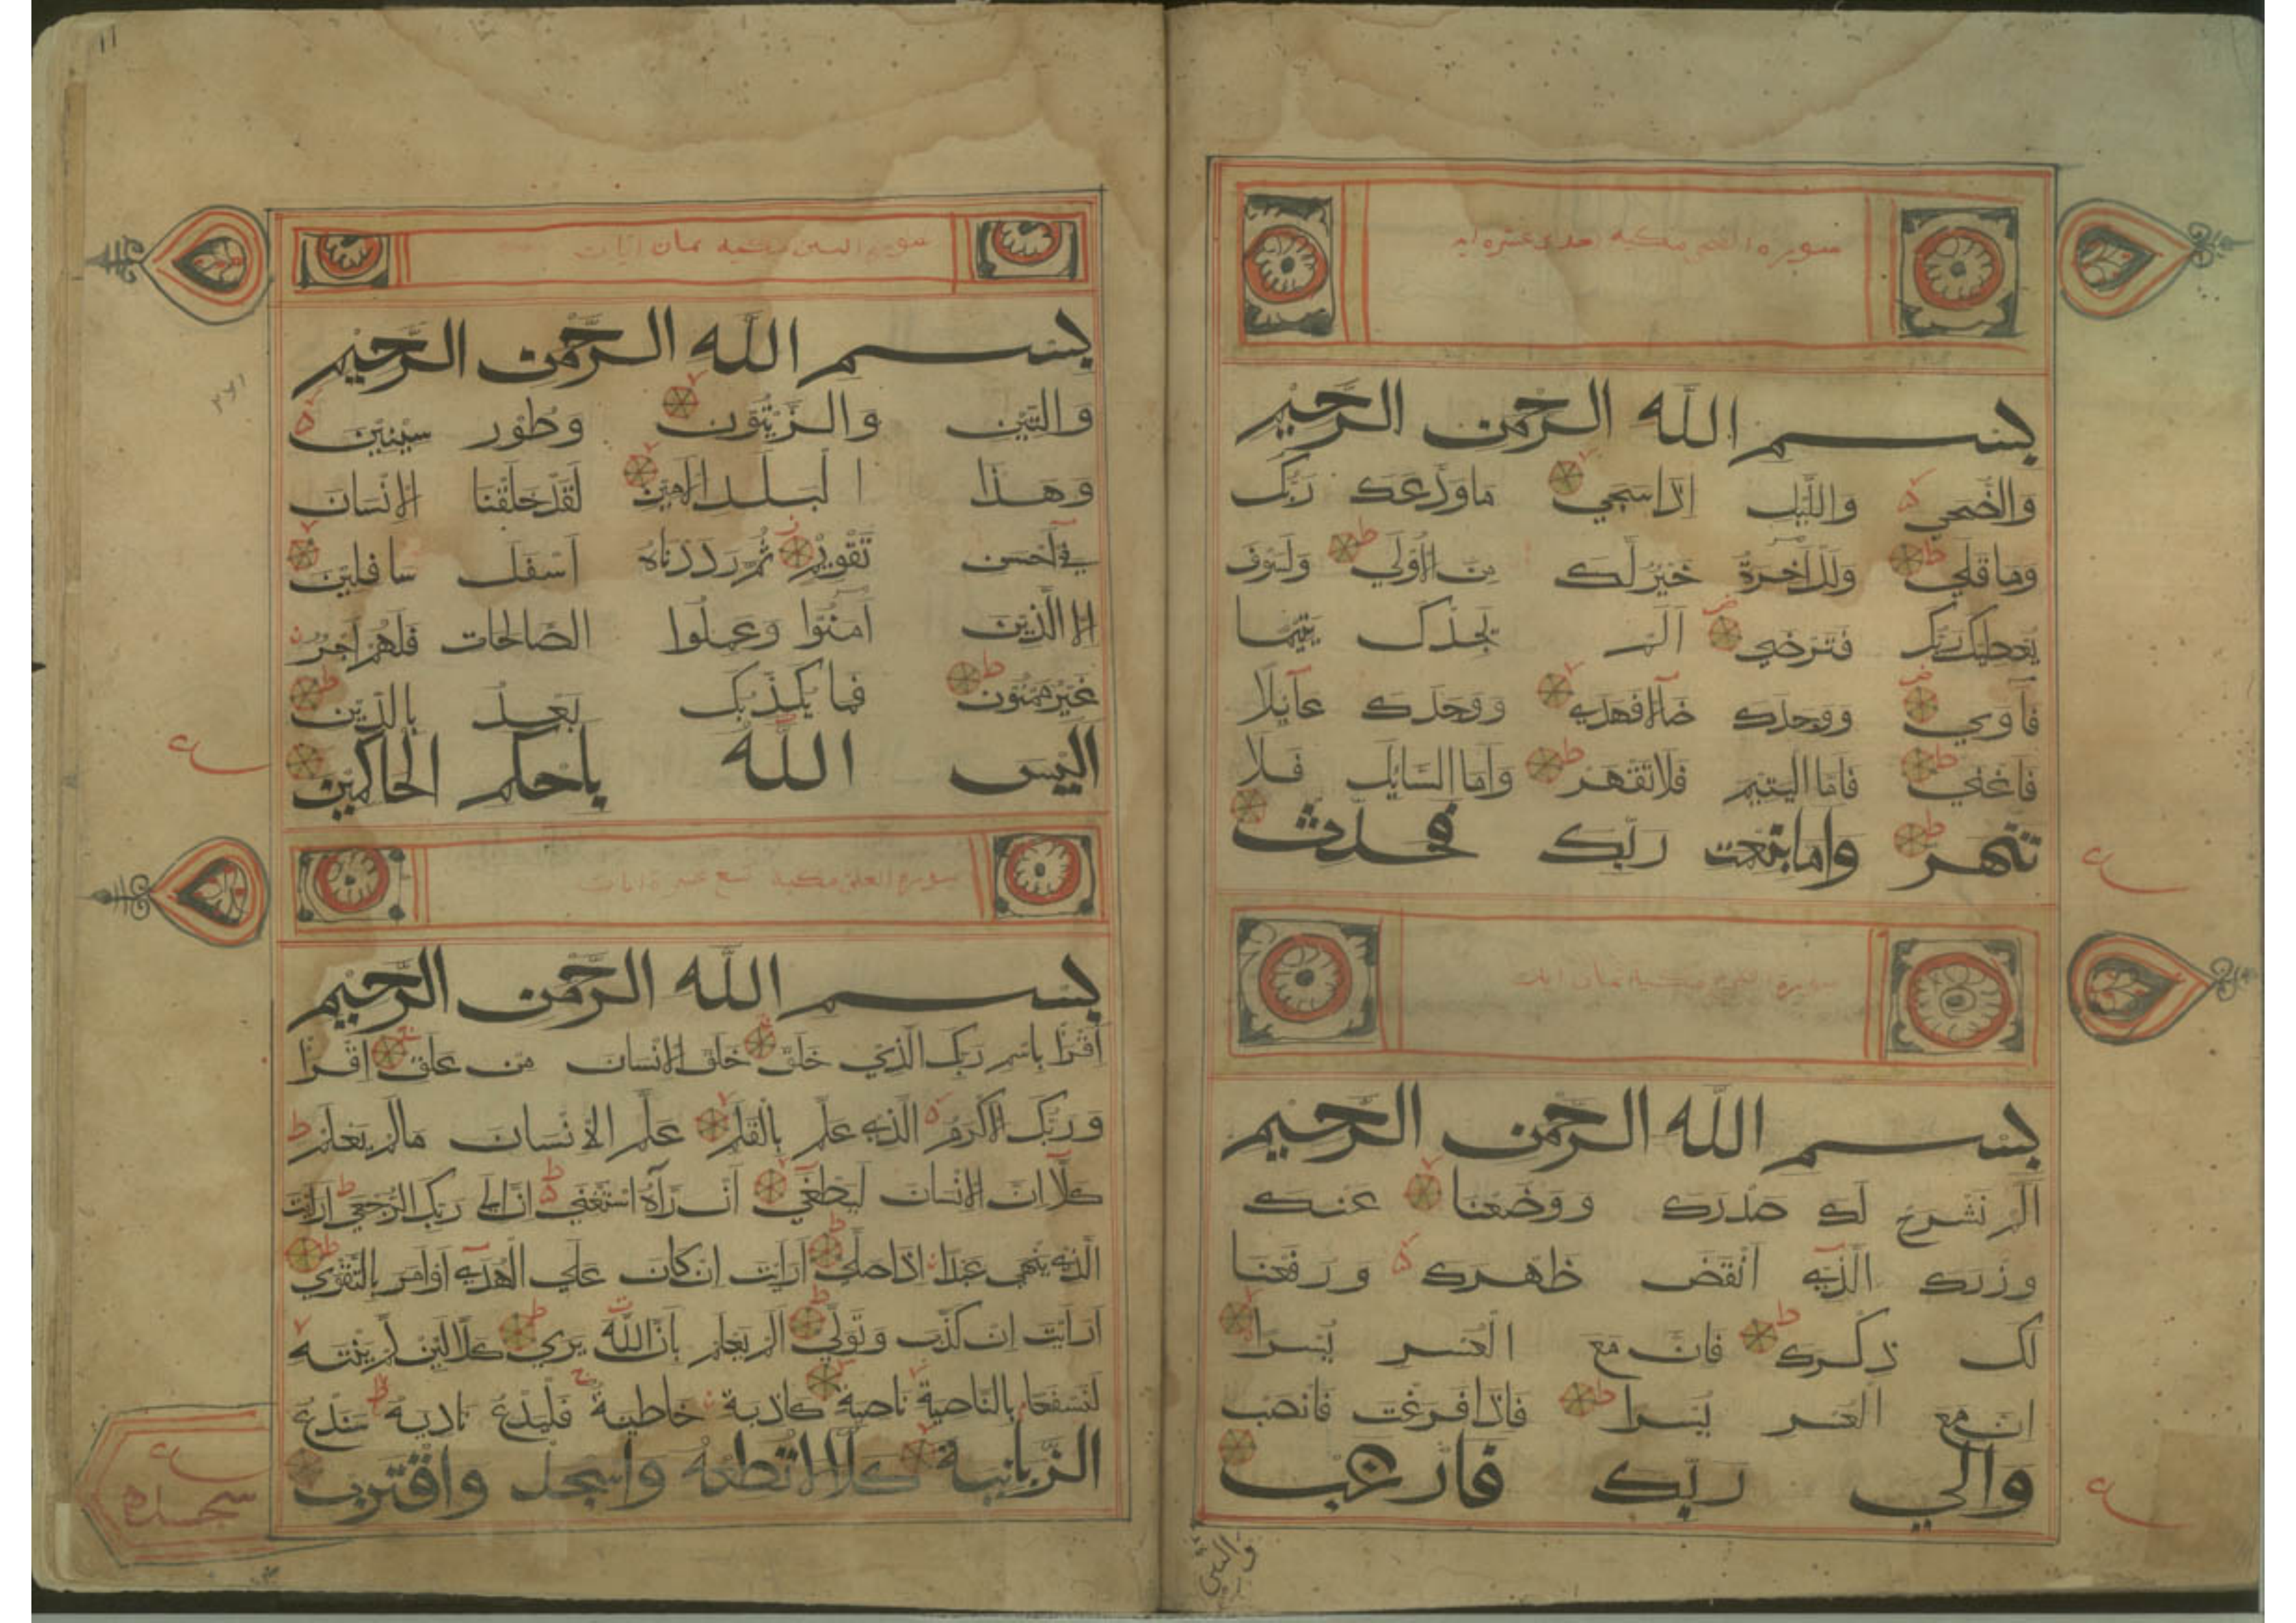 سورة الضحى مكية احدى عشرة اية
بسم الله الرحمن الرحيم
والضحي واللیل اذا سجي ماودعك ربك
وما قلي وللاخرة خير لك من الاولي ولسوف
يعطيك ربك فترضي الم يجدك يتيما
فآوي ووجدك ضآلا فهدي ووجدك عآئلا
فاغني فاما اليتيم فلا تقهر واما السايل فلا
تنهر واما بنعمت ربك فحدث
ع
سورة مكية ثمان ايات
بسم الله الرحمن الرحيم
الم نشرح لك صدرك ووضعنا عنك
وزرك الذي انقض ظهرك ورفعنا
لك ذكرك فان مع العسر يسرا
ان مع العسر يسرا فاذا فرغت فانصب
والي ربك فارغب
ع
والتين
۱۱
سورة التين مكية ثمان ايات
بسم الله الرحمن الرحيم
والتين والزيتون وطور سينين
وهذا البلد الامين لقد خلقنا الانسان
في احسن تقويم ثم رددناه اسفل سافلين
الا الذين آمنوا وعملوا الصالحات فلهم اجر
غير ممنون فما يكذبك بعد بالدين
اليس الله باحكم الحاكمين
ع
سورة العلق مكية تسع عشرة ايات
بسم الله الرحمن الرحيم
اقرا باسم ربك الذي خلق خلق الانسان من علق اقرا
وربك الاكرم الذي علم بالقلم علم الانسان مالم يعلم
كلا ان الانسان ليطغي ان رآه استغني ان الي ربك الرجعي ارايت
الذي ينهي عبدا اذا صلي ارايت ان كان علي الهدي او امر بالتقوي
ارايت ان كذب وتولي الم يعلم بان الله يري كلا لئن لم ينته
لنسفعا بالناصية ناصية كاذبة خاطية فليدع ناديه سندع
الزبانية كلا لا تطعه واسجد واقترب
ع
سجده